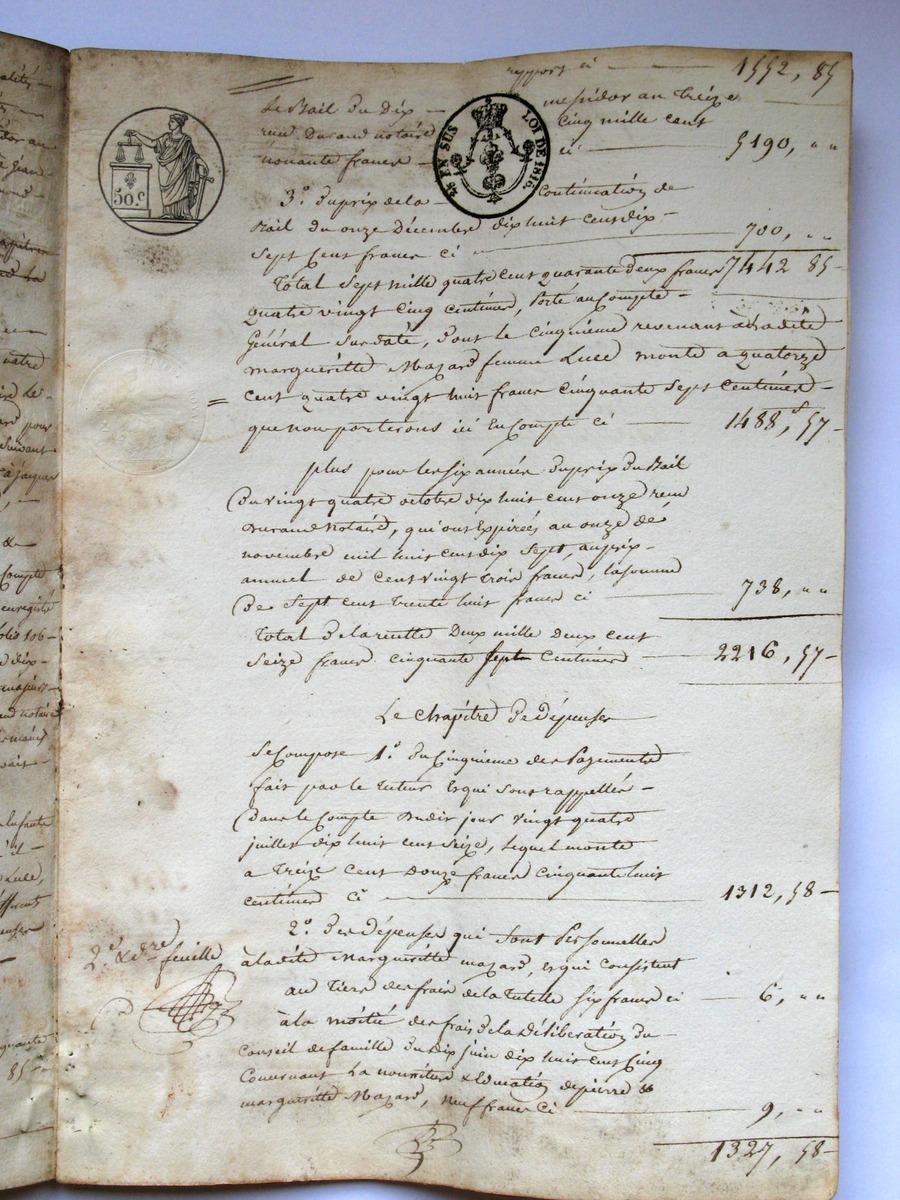 rapport ci — 1552, 85
Le Bail du Dix — messidor an treize
reçu Durand notaire cinq mille cent
nonante francs — ci — 5190, " "
50.c
EN SUS LOI DE 1816.
3.° du prix de la — continuation de
Bail du onze Décembre dix huit cent dix —
sept cent francs ci — 700, " "
Total sept mille quatre cent quarante deux francs 7442 85 —
quatre vingt cinq centimes, porté au compte —
Général sus daté, dont le cinquième revenant à la dite
margueritte Mazard femme Luce monte a quatorze
= cent quatre vingt huit francs cinquante sept centimes —
que nous porterons ici en compte ci — 1488 f, 57 —
plus pour les six années du prix du Bail
du vingt quatre octobre dix huit cent onze reçu
Durand notaire, qui ont expirées au onze de
novembre mil huit cent dix sept, au prix —
annuel de cent vingt trois francs, la somme
de sept cent trente huit francs ci — 738, " "
Total de la recette Deux mille deux cent
seize francs cinquante sept centimes — 2216, 57 —
Le chapître de dépenses
se compose 1.° du cinquième des payements
fait par le tuteur et qui sont rappellés —
dans le compte du dix jour vingt quatre
juillet dix huit cent seize, lequel monte
a treize cent douze francs cinquante huit
centimes ci — 1312, 58 —
2.° des dépenses qui sont personnelles
à la dite Margueritte mazard, et qui consistent
au tiers des frais de la tutelle six francs ci — 6, " "
à la moitié des frais de la délibération du
conseil de famille du dix juin dix huit cent cinq
concernant la nourriture & éducation de pierre &
margueritte Mazard, neuf francs ci — 9, " "
1327, 58 —
2.e & d.re feuille